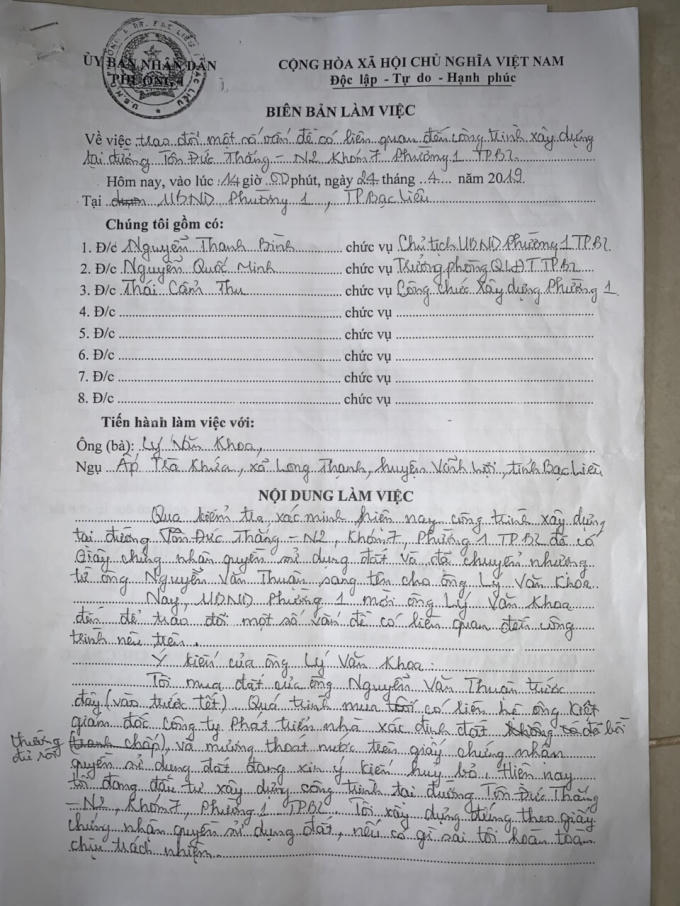 ỦY BAN NHÂN DÂN
PHƯỜNG 1
CỘNG HÒA XÃ HỘI CHỦ NGHĨA VIỆT NAM
Độc lập - Tự do - Hạnh phúc
BIÊN BẢN LÀM VIỆC
Về việc trao đổi một số vấn đề có liên quan đến công trình xây dựng
tại đường Tôn Đức Thắng - N2, Khóm 7, Phường 1 TPBL
Hôm nay, vào lúc 14 giờ 00 phút, ngày 24 tháng 4 năm 2019
Tại UBND Phường 1, TP Bạc Liêu
Chúng tôi gồm có:
1. Đ/c Nguyễn Thanh Bình chức vụ Chủ tịch UBND Phường 1 TPBL
2. Đ/c Nguyễn Quốc Minh chức vụ Trưởng phòng QLĐT TPBL
3. Đ/c Thái Cẩm Thu chức vụ Công chức xây dựng Phường 1
4. Đ/c chức vụ
5. Đ/c chức vụ
6. Đ/c chức vụ
7. Đ/c chức vụ
8. Đ/c chức vụ
Tiến hành làm việc với:
Ông (bà): Lý Văn Khoa,
Ngụ Ấp Trà Khứa, xã Long Thạnh, huyện Vĩnh Lợi, tỉnh Bạc Liêu
NỘI DUNG LÀM VIỆC
Qua kiểm tra, xác minh hiện nay công trình xây dựng
tại đường Tôn Đức Thắng - N2, Khóm 7, Phường 1 TPBL đã có
Giấy chứng nhận quyền sử dụng đất và đã chuyển nhượng
từ ông Nguyễn Văn Thuận sang tên cho ông Lý Văn Khoa
Nay, UBND Phường 1 mời ông Lý Văn Khoa
đến để trao đổi một số vấn đề có liên quan đến công
trình nêu trên.
Ý kiến của ông Lý Văn Khoa:
Tôi mua đất của ông Nguyễn Văn Thuận trước
đây (vào trước tết). Quá trình mua tôi có liên hệ ông Kiệt
giám đốc công ty Phát triển nhà xác định đất không có đã bồi
thường đủ rồi (tranh chấp), và mương thoát nước trên giấy chứng nhận
quyền sử dụng đất đang xin ý kiến huỷ bỏ. Hiện nay
tôi đang đầu tư xây dựng công trình tại đường Tôn Đức Thắng
- N2, Khóm 7, Phường 1 TPBL. Tôi xây dựng đúng theo giấy
chứng nhận quyền sử dụng đất, nếu có gì sai tôi hoàn toàn
chịu trách nhiệm.